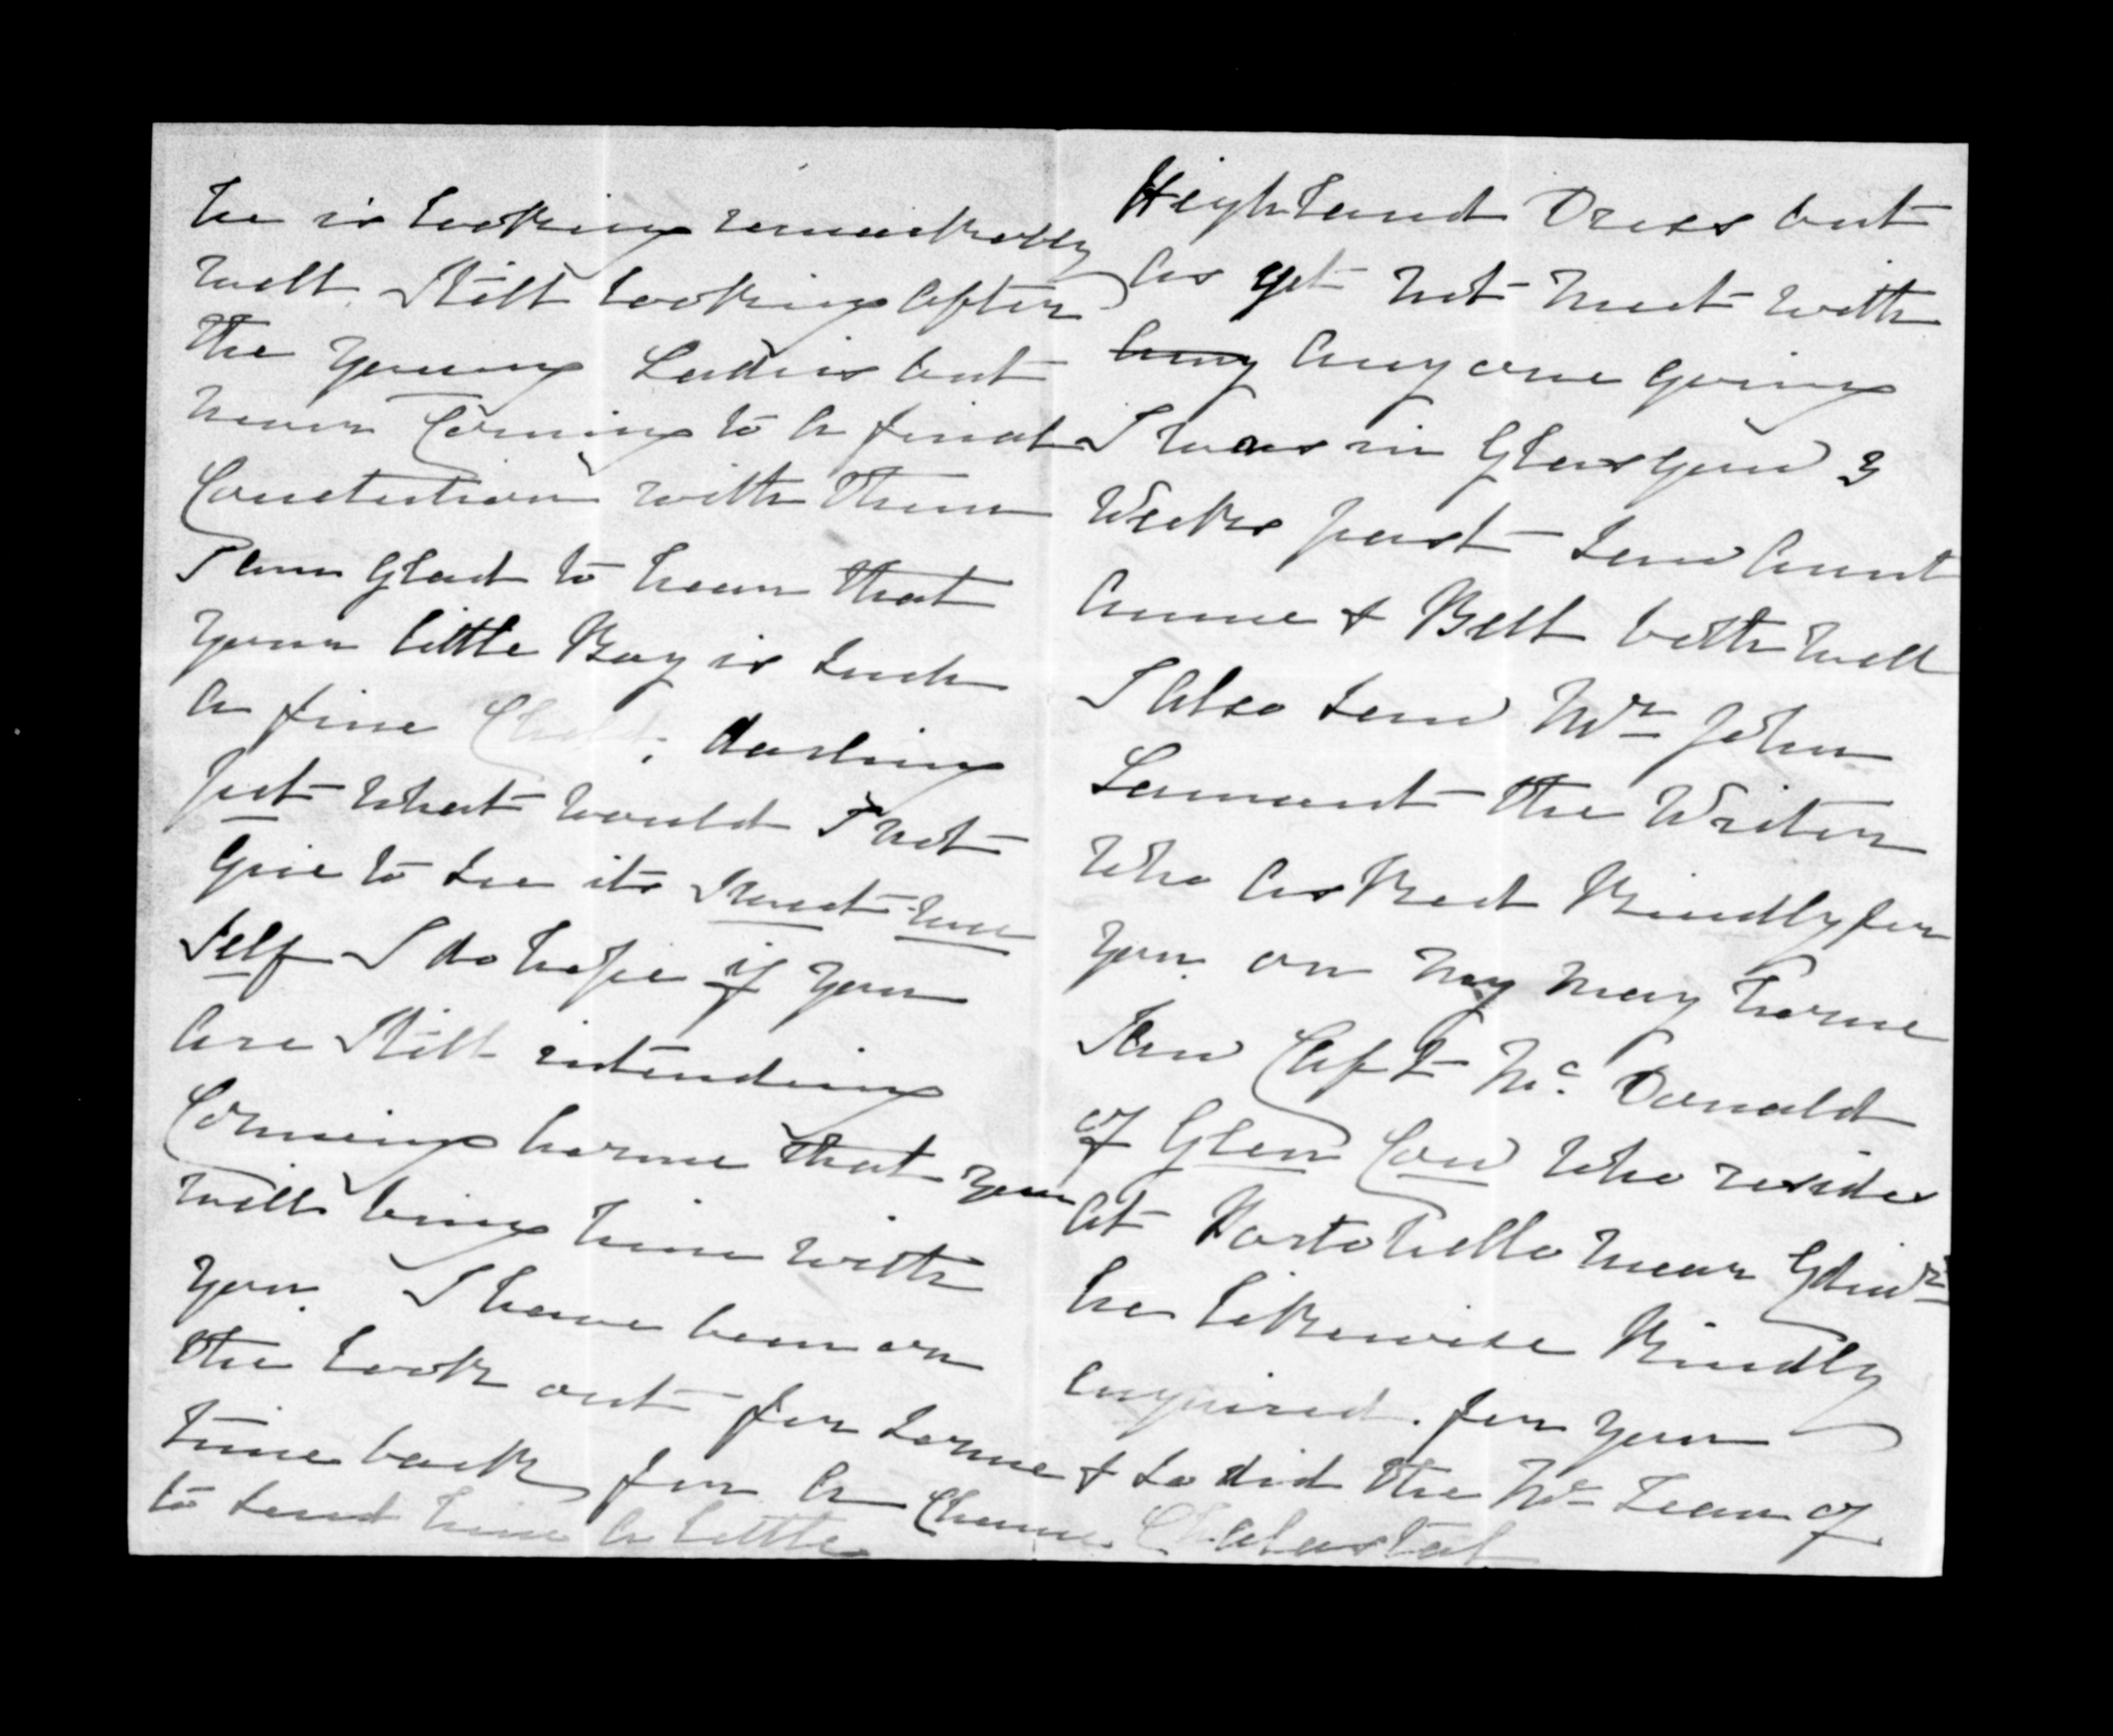 he is looking remarkably
well. Still looking after
the young Ladies but
never Coming to a final
Conclution with them
I am Glad to hear that
your little Boy is such
a fine Child, darling
pet what would I not
give to see its Sweet wee
Self I do hope if you
are Still intending
Coming home that you
will bring him with
you. I have been on
the look out for some
time back for a Chance
to send him a little
Highland Dress but
as yet not meet with
any any one going
I was in Glasgow 3
Weeks past saw Aunt
Anne & Bell both well
I also saw Mr John
Lamont the Writer
who asked Kindly for
you on my way home
Saw Capt Mc Donald
of Glen Cow who resides
at Portobello near Edinr
he likewise Kindly
enquired for you
& so did the Mc Lean of